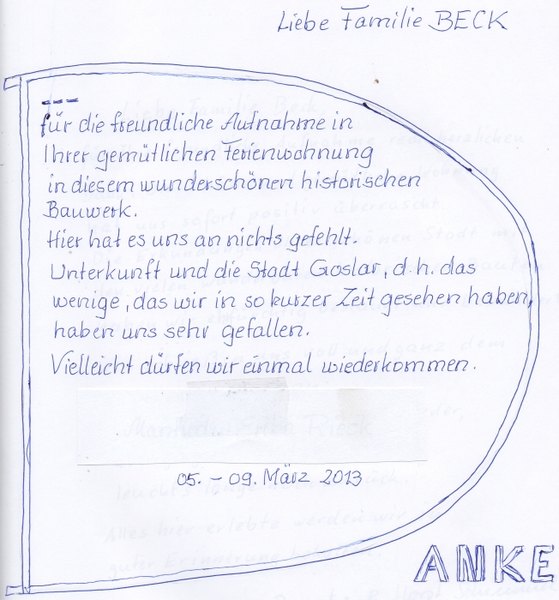 Liebe Familie BECK
für die freundliche Aufnahme in
Ihrer gemütlichen Ferienwohnung
in diesem wunderschönen historischen
Bauwerk.
Hier hat es uns an nichts gefehlt.
Unterkunft und die Stadt Goslar, d.h. das
wenige, das wir in so kurzer Zeit gesehen haben,
haben uns sehr gefallen.
Vielleicht dürfen wir einmal wiederkommen.
05. – 09. März 2013
ANKE